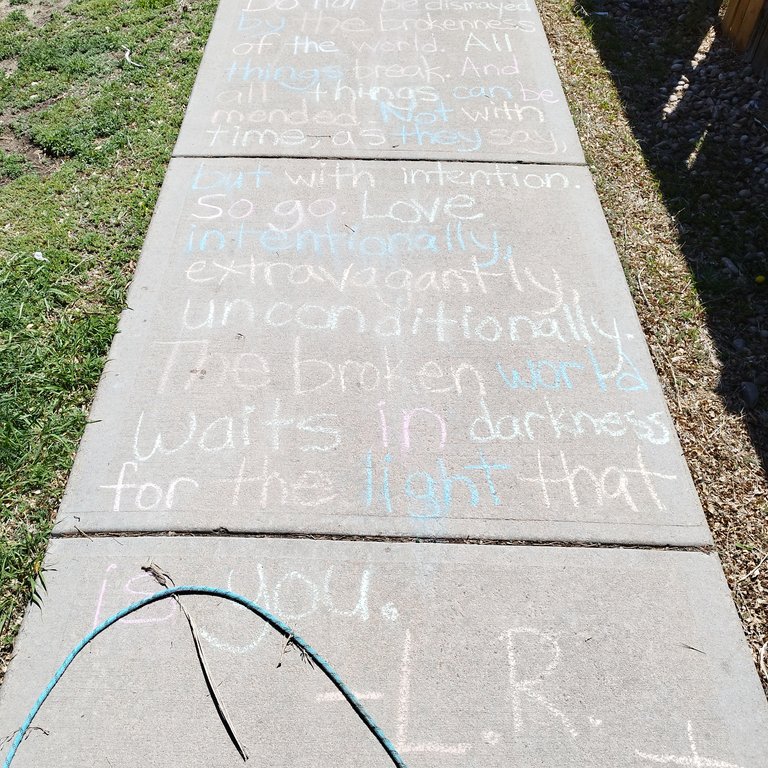 Do not be dismayed
by the brokenness
of the world. All
things break. And
all things can be
mended. Not with
time, as they say,
but with intention.
So go. Love
intentionally,
extravagantly,
unconditionally.
The broken world
waits in darkness
for the light that
is you.
-L.R.